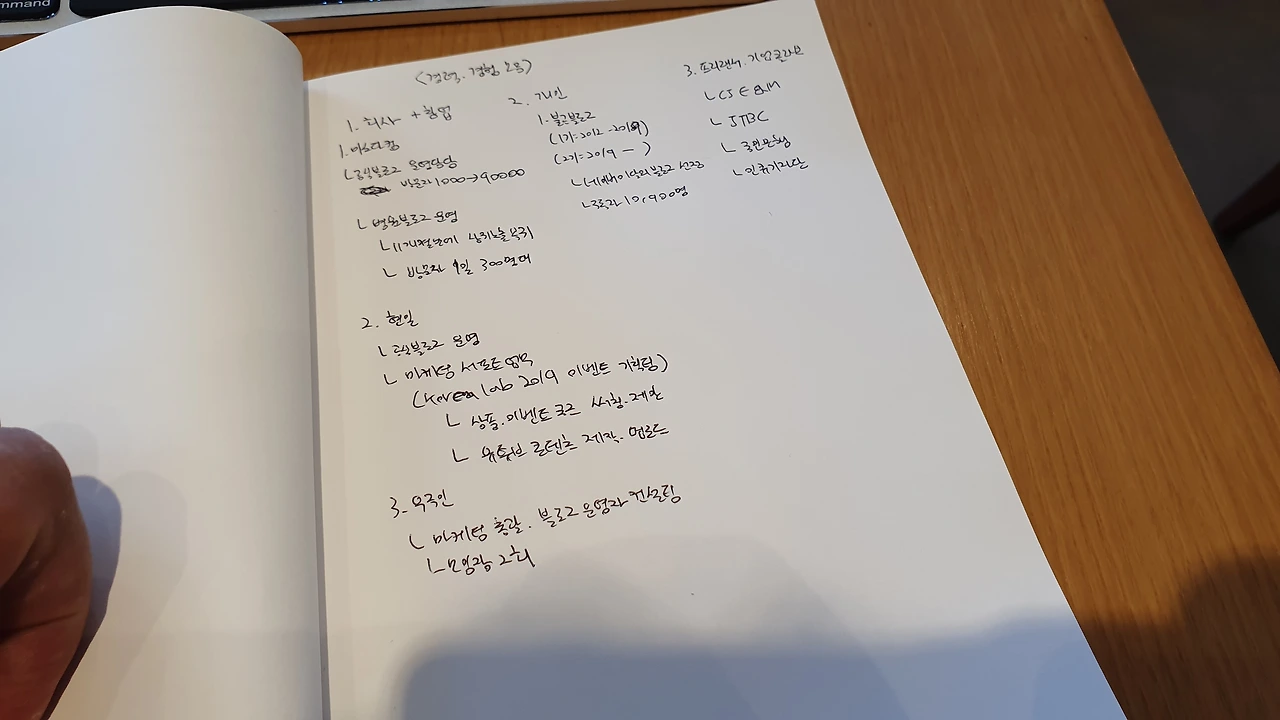 mmand
(경력. 경험
1. 회사 + 협업
1.
공식블로그 운영담당
방문자 1000→90000
ㄴ 블로그 운영
ㄴ 방문자 1일 300명대
2. 현일
ㄴ 공식블로그 운영
ㄴ 마케팅 서포트업무
(Korea lab 2019 이벤트 기획팅)
ㄴ 상품.이벤트 굿즈 제안
ㄴ 유튜브 콘텐츠 제작. 업로드
3.
ㄴ 마케팅 총괄. 블로그 운영자 컨설팅
ㄴ 2회
2. 개인
1. 블로그
(1기=2012-2019)
(2기=2019 - )
ㄴ 네이버 이달의블로그 선정
ㄴ 구독자 10,900명
3. 프리랜서. 기업콜라보
ㄴ CJ E&M
ㄴ JTBC
ㄴ 국민은행
ㄴ